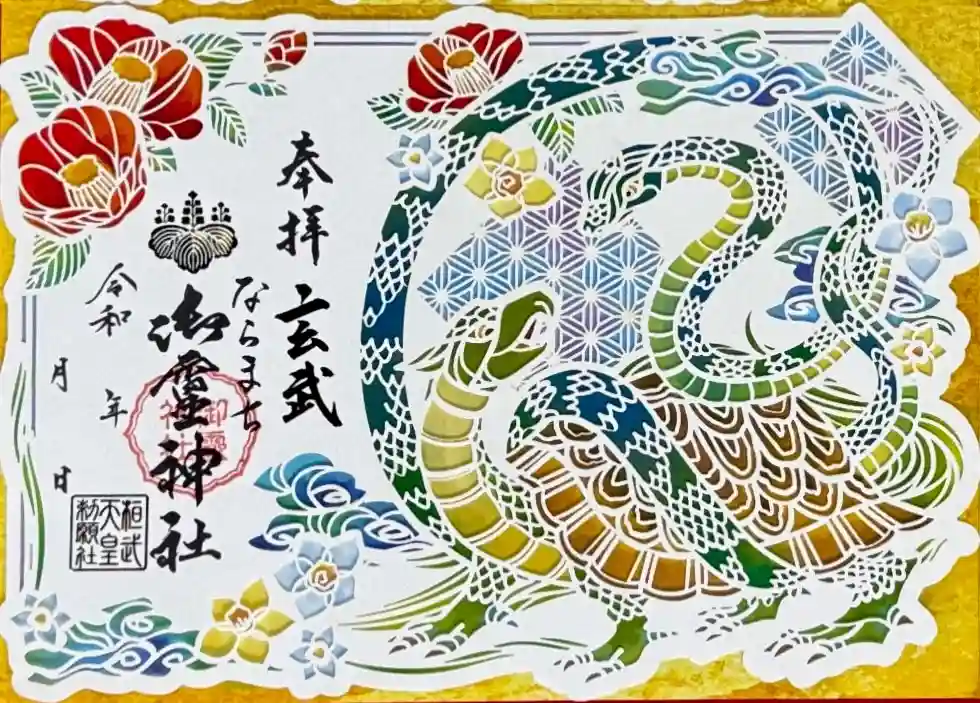 奉拝 玄武
ならまち
御霊神社
令和 年
月 日
桓武
天皇
勅願社